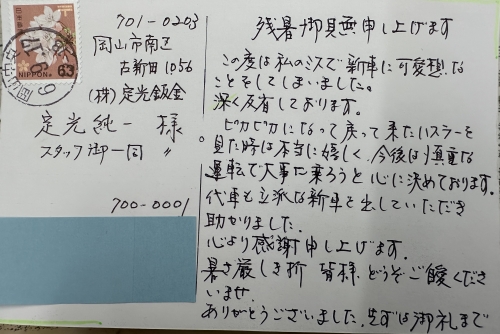 日本郵便
NIPPON 63
701-0203
岡山市南区
古新田1056
(株)定光鈑金
定光純一 様
スタッフ御一同 〃
700-0001
残暑御見舞申し上げます
この度は私のミスで新車に可愛想な
ことをしてしまいました。
深く反省しております。
ピカピカになって戻って来たハスラーを
見た時は本当に嬉しく、今後は慎重な
運転で大事に乗ろうと心に決めております。
代車も立派な新車を出していただき
助かりました。
心より感謝申し上げます。
暑さ厳しき折 皆様 どうぞご自愛くださ
いませ
ありがとうございました、先ずは御礼まで